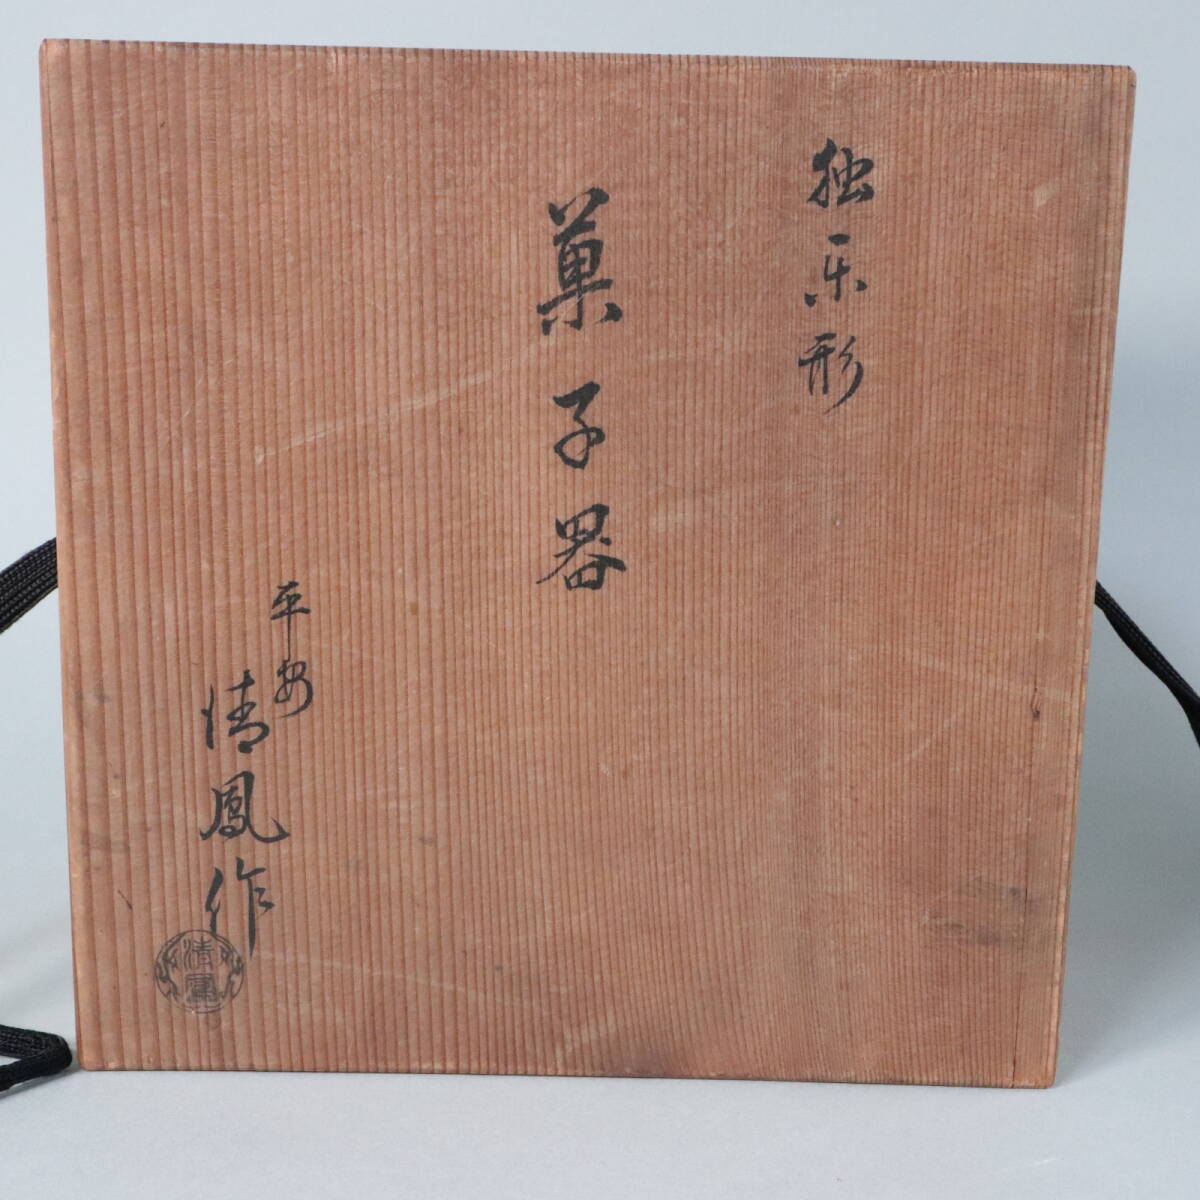 独楽形
菓子器
平安
清鳳作
清鳳